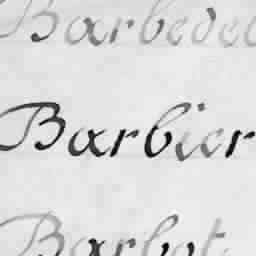 Barbedet
Barbier
Barbot